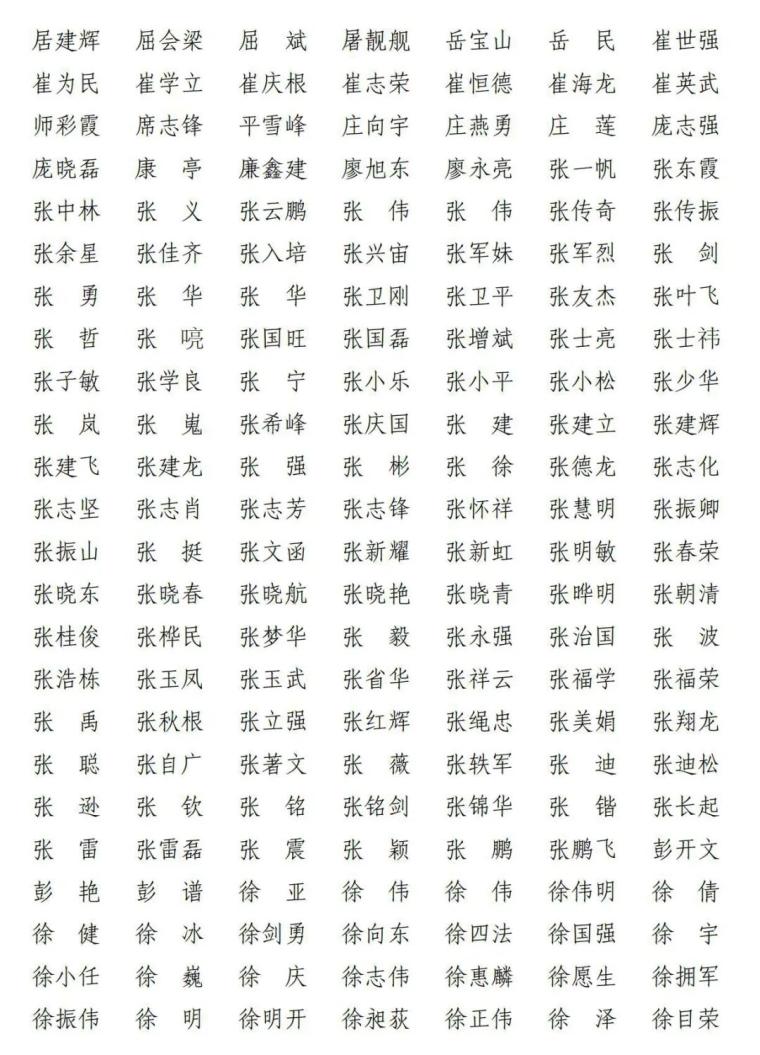 居建辉 屈会梁 屈　斌 屠靓舰 岳宝山 岳　民 崔世强
崔为民 崔学立 崔庆根 崔志荣 崔恒德 崔海龙 崔英武
师彩霞 席志锋 平雪峰 庄向宇 庄燕勇 庄　莲 庞志强
庞晓磊 康　亭 廉鑫建 廖旭东 廖永亮 张一帆 张东霞
张中林 张　义 张云鹏 张　伟 张　伟 张传奇 张传振
张余星 张佳齐 张入培 张兴宙 张军妹 张军烈 张　剑
张　勇 张　华 张　华 张卫刚 张卫平 张友杰 张叶飞
张　哲 张　喨 张国旺 张国磊 张增斌 张士亮 张士祎
张子敏 张学良 张　宁 张小乐 张小平 张小松 张少华
张　岚 张　嵬 张希峰 张庆国 张　建 张建立 张建辉
张建飞 张建龙 张　强 张　彬 张　徐 张德龙 张志化
张志坚 张志肖 张志芳 张志锋 张怀祥 张慧明 张振卿
张振山 张　挺 张文函 张新耀 张新虹 张明敏 张春荣
张晓东 张晓春 张晓航 张晓艳 张晓青 张晔明 张朝清
张桂俊 张桦民 张梦华 张　毅 张永强 张治国 张　波
张浩栋 张玉凤 张玉武 张省华 张祥云 张福学 张福荣
张　禹 张秋根 张立强 张红辉 张绳忠 张美娟 张翔龙
张　聪 张自广 张著文 张　薇 张轶军 张　迪 张迪松
张　逊 张　钦 张　铭 张铭剑 张锦华 张　锴 张长起
张　雷 张雷磊 张　震 张　颖 张　鹏 张鹏飞 彭开文
彭　艳 彭　谱 徐　亚 徐　伟 徐　伟 徐伟明 徐　倩
徐　健 徐　冰 徐剑勇 徐向东 徐四法 徐国强 徐　宇
徐小任 徐　巍 徐　庆 徐志伟 徐惠麟 徐愿生 徐拥军
徐振伟 徐　明 徐明开 徐昶荻 徐正伟 徐　泽 徐目荣